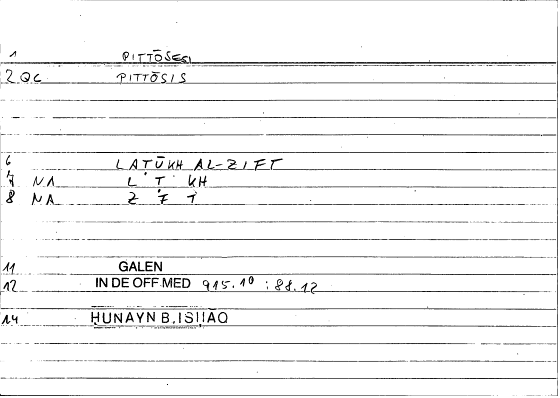 1 PITTŌSESI
2 QC PITTŌSIS
6 LAṬŪKH AL-ZIFT
7 NA L Ṭ KH
8 NA Z F T
11 GALEN
12 IN DE OFF.MED 915.10 : 88.12
14 ḤUNAYN B.ISḤĀQ